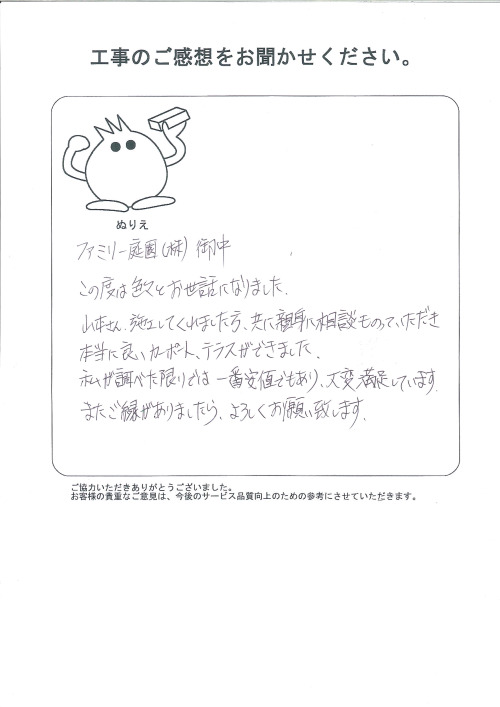 工事のご感想をお聞かせください。
ぬりえ
ファミリー庭園(株) 御中
この度は色々とお世話になりました.
山本さん. 施工してくれました方、共に親身に相談ものっていただき
本当に良いカーポート、テラスができました.
私が調べた限りでは一番安値でもあり、大変満足しています.
またご縁がありましたら、よろしくお願い致します.
ご協力いただきありがとうございました。
お客様の貴重なご意見は、今後のサービス品質向上のための参考にさせていただきます。